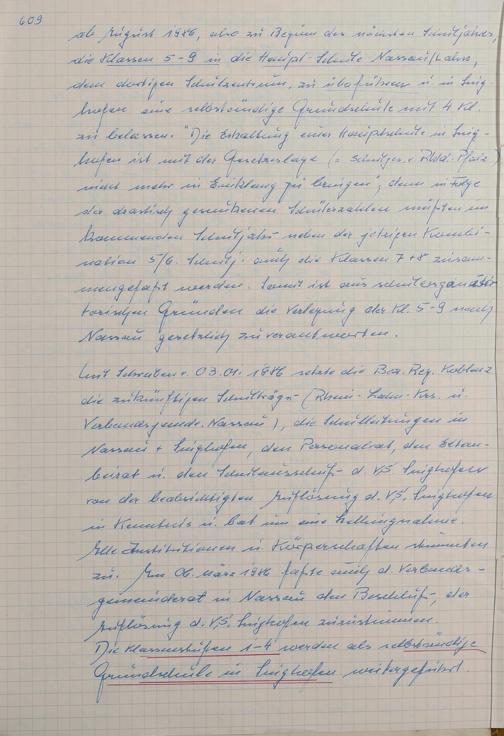 609
ab August 1986, also zu Beginn des nächsten Schuljahres,
die Klassen 5-9 in die Haupt-Schule Nassau/Lahn,
dem dortigen Schulzentrum, zu überführen u. in Sing-
hofen eine selbständige Grundschule mit 4 Kl.
zu belassen. "Die Erhaltung einer Hauptschule in Sing-
hofen ist mit der Gesetzeslage (= Schulges. v. Rhld.-Pfalz)
nicht mehr in Einklang zu bringen", denn infolge
der drastisch gesunkenen Schülerzahlen müßten im
kommenden Schuljahr neben der jetzigen Kombi-
nation 5/6. Schulj. auch die Klassen 7+8 zusam-
mengefaßt werden. Somit ist aus schulorganisa-
torischen Gründen die Verlegung der Kl. 5-9 nach
Nassau gesetzlich zu verantworten.
Mit Schreiben v. 03.01.1986 setzte die Bez. Reg. Koblenz
die zukünftigen Schulträger (Rhein-Lahn-Krs. u.
Verbandsgemeinde Nassau), die Schulleitungen in
Nassau + Singhofen, den Personalrat, den Eltern-
beirat u. den Schulausschuß d. VS Singhofen
von der beabsichtigten Auflösung d. VS. Singhofen
in Kenntnis u. bat um eine Stellungnahme.
Alle Institutionen u. Körperschaften stimmten
zu. Am 06. März 1986 faßte auch d. Verbands-
gemeinderat in Nassau den Beschluß, der
Auflösung d. VS. Singhofen zuzustimmen.
Die Klassenstufen 1-4 werden als selbständige
Grundschule in Singhofen weitergeführt.